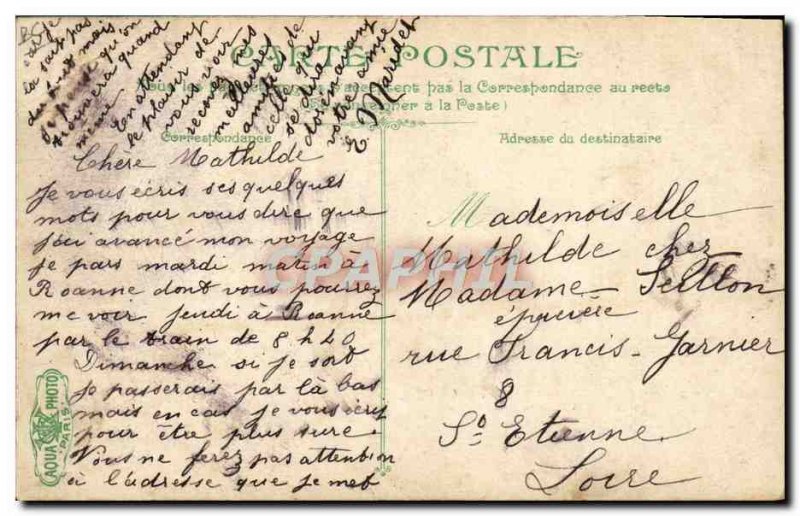 CARTE POSTALE
Tous les pays n'acceptent pas la Correspondance au recto
(Se renseigner à la Poste)
Correspondance
Adresse du destinataire
Chere Mathilde
Je vous écris ses quelques
mots pour vous dire que
j'ai avancé mon voyage
Je pars mardi matin à
Roanne dont vous pourrez
me voir jeudi à Roanne
par le train de 8h40
Dimanche si je sort
Je passerais par là bas
mais en cas je vous écris
pour être plus sure
Vous ne ferez pas attention
à l'adresse que je met
car je
la sait pas
du tout mais
je pense qu'on
trouvera quand
même
En attendant
le plaisir de
vous voir
recevez mes
meilleures
amitiés de
celle qui
se dira
votre amie
Mademoiselle
Mathilde chez
Madame
rue Francis-Garnier
8
St Etienne
Loire
AQUA PHOTO
PARIS
CPAPHIL